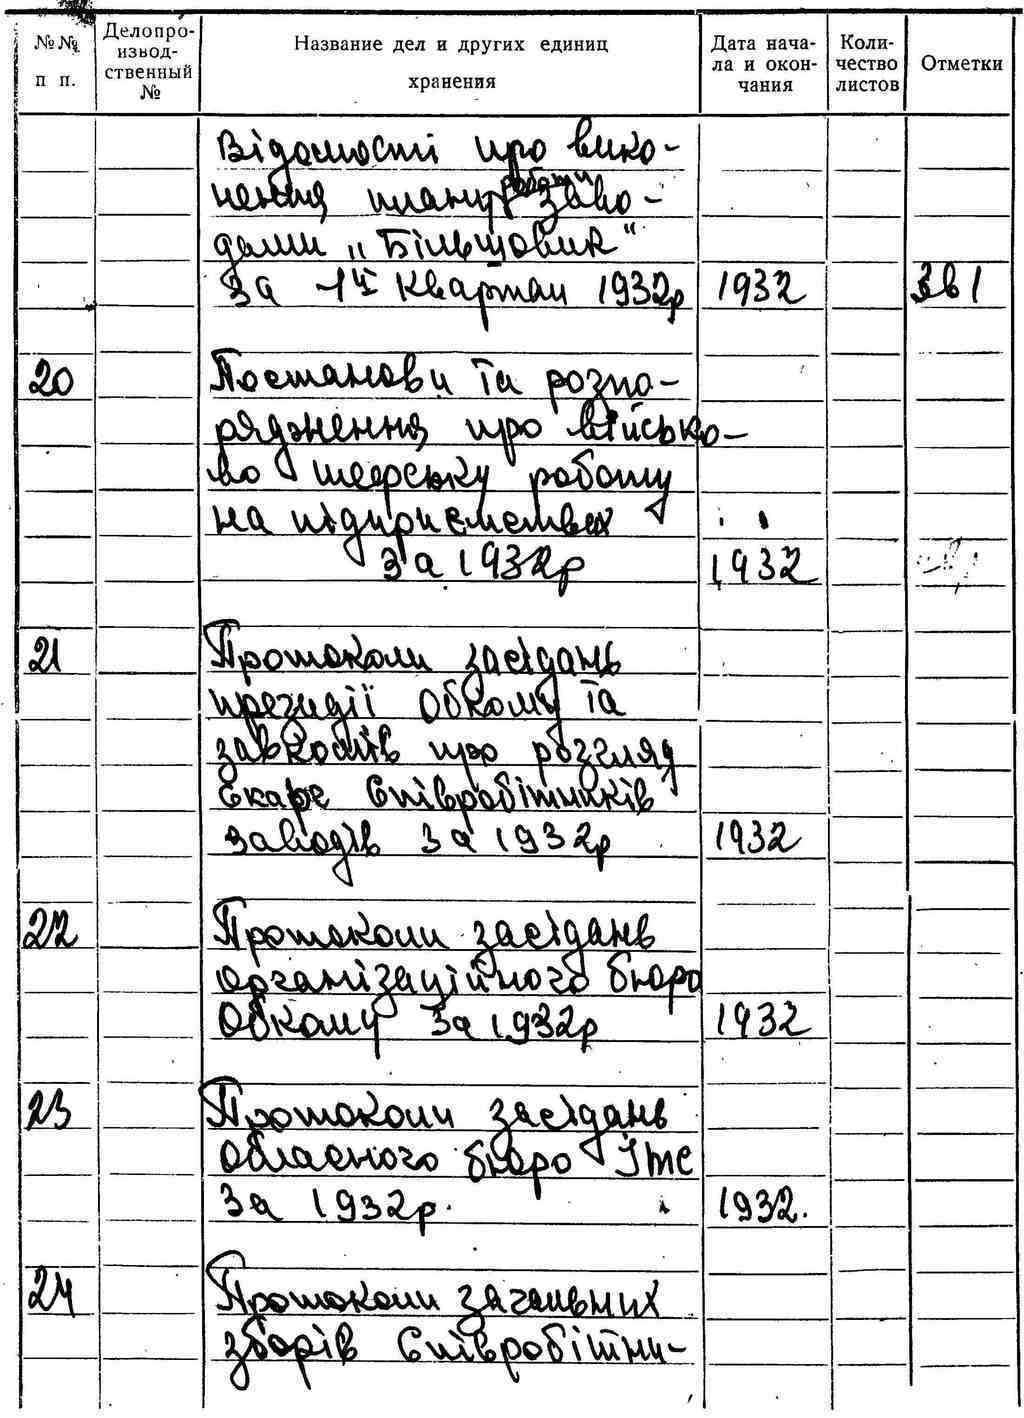 №№ п п.
Делопроизводственный №
Название дел и других единиц хранения
Дата начала и окончания
Количество листов
Отметки
Відомості про вико-
нення плану роботи заво-
дами „Більшовик"
за 1й квартал 1932р 1932
20 Постанови та розпо-
рядження про військо-
во шефську роботу
на підприємствах
за 1932р 1932
21 Протоколи засідань
президії Обкому та
завкомів про розгляд
скарг співробітників
заводів за 1932р 1932
22 Протоколи засідань
організаційного бюро
Обкому за 1932р 1932
23 Протоколи засідань
обласного бюро Ітс
за 1932р. 1932.
24 Протоколи загальних
зборів співробітни-